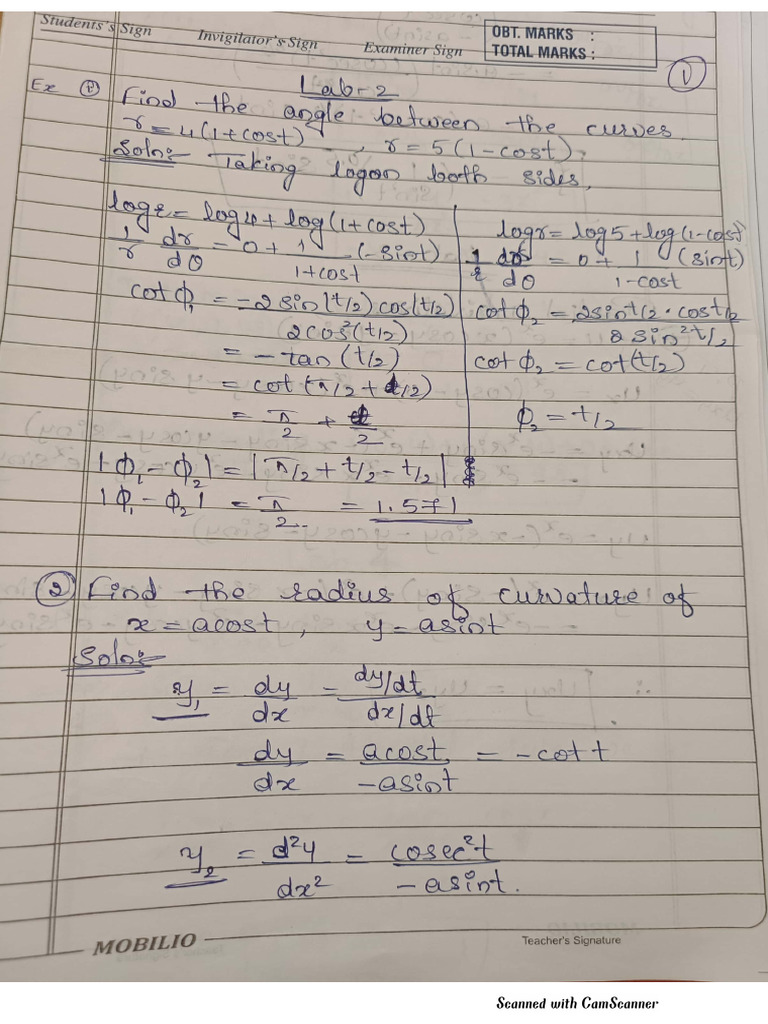 Students's Sign Invigilator's Sign Examiner Sign
OBT. MARKS :
TOTAL MARKS :
1
Lab-2
Ex ① Find the angle between the curves
r = 4(1+cost) , r = 5(1-cost).
Soln:- Taking log on both sides,
log r = log 4 + log(1+cost)
1/r dr/dθ = 0 + 1/(1+cost) (-sint)
cot ϕ₁ = -2 sin(t/2) cos(t/2) / 2cos²(t/2)
= -tan(t/2)
= cot(π/2 + t/2)
= π/2 + t/2
log r = log 5 + log(1-cost)
1/r dr/dθ = 0 + 1/(1-cost) (sint)
cot ϕ₂ = 2sint/2 · cost/2 / 2 sin²t/2
cot ϕ₂ = cot(t/2)
ϕ₂ = t/2
|ϕ₁ - ϕ₂| = |π/2 + t/2 - t/2|
|ϕ₁ - ϕ₂| = π/2 = 1.571
② Find the radius of curvature of
x = acost , y = asint
Soln:-
y₁ = dy/dx = dy/dt / dx/dt
dy/dx = acost / -asint = -cot t
y₂ = d²y/dx² = cosec²t / -asint.
MOBILIO
Teacher's Signature
Scanned with CamScanner